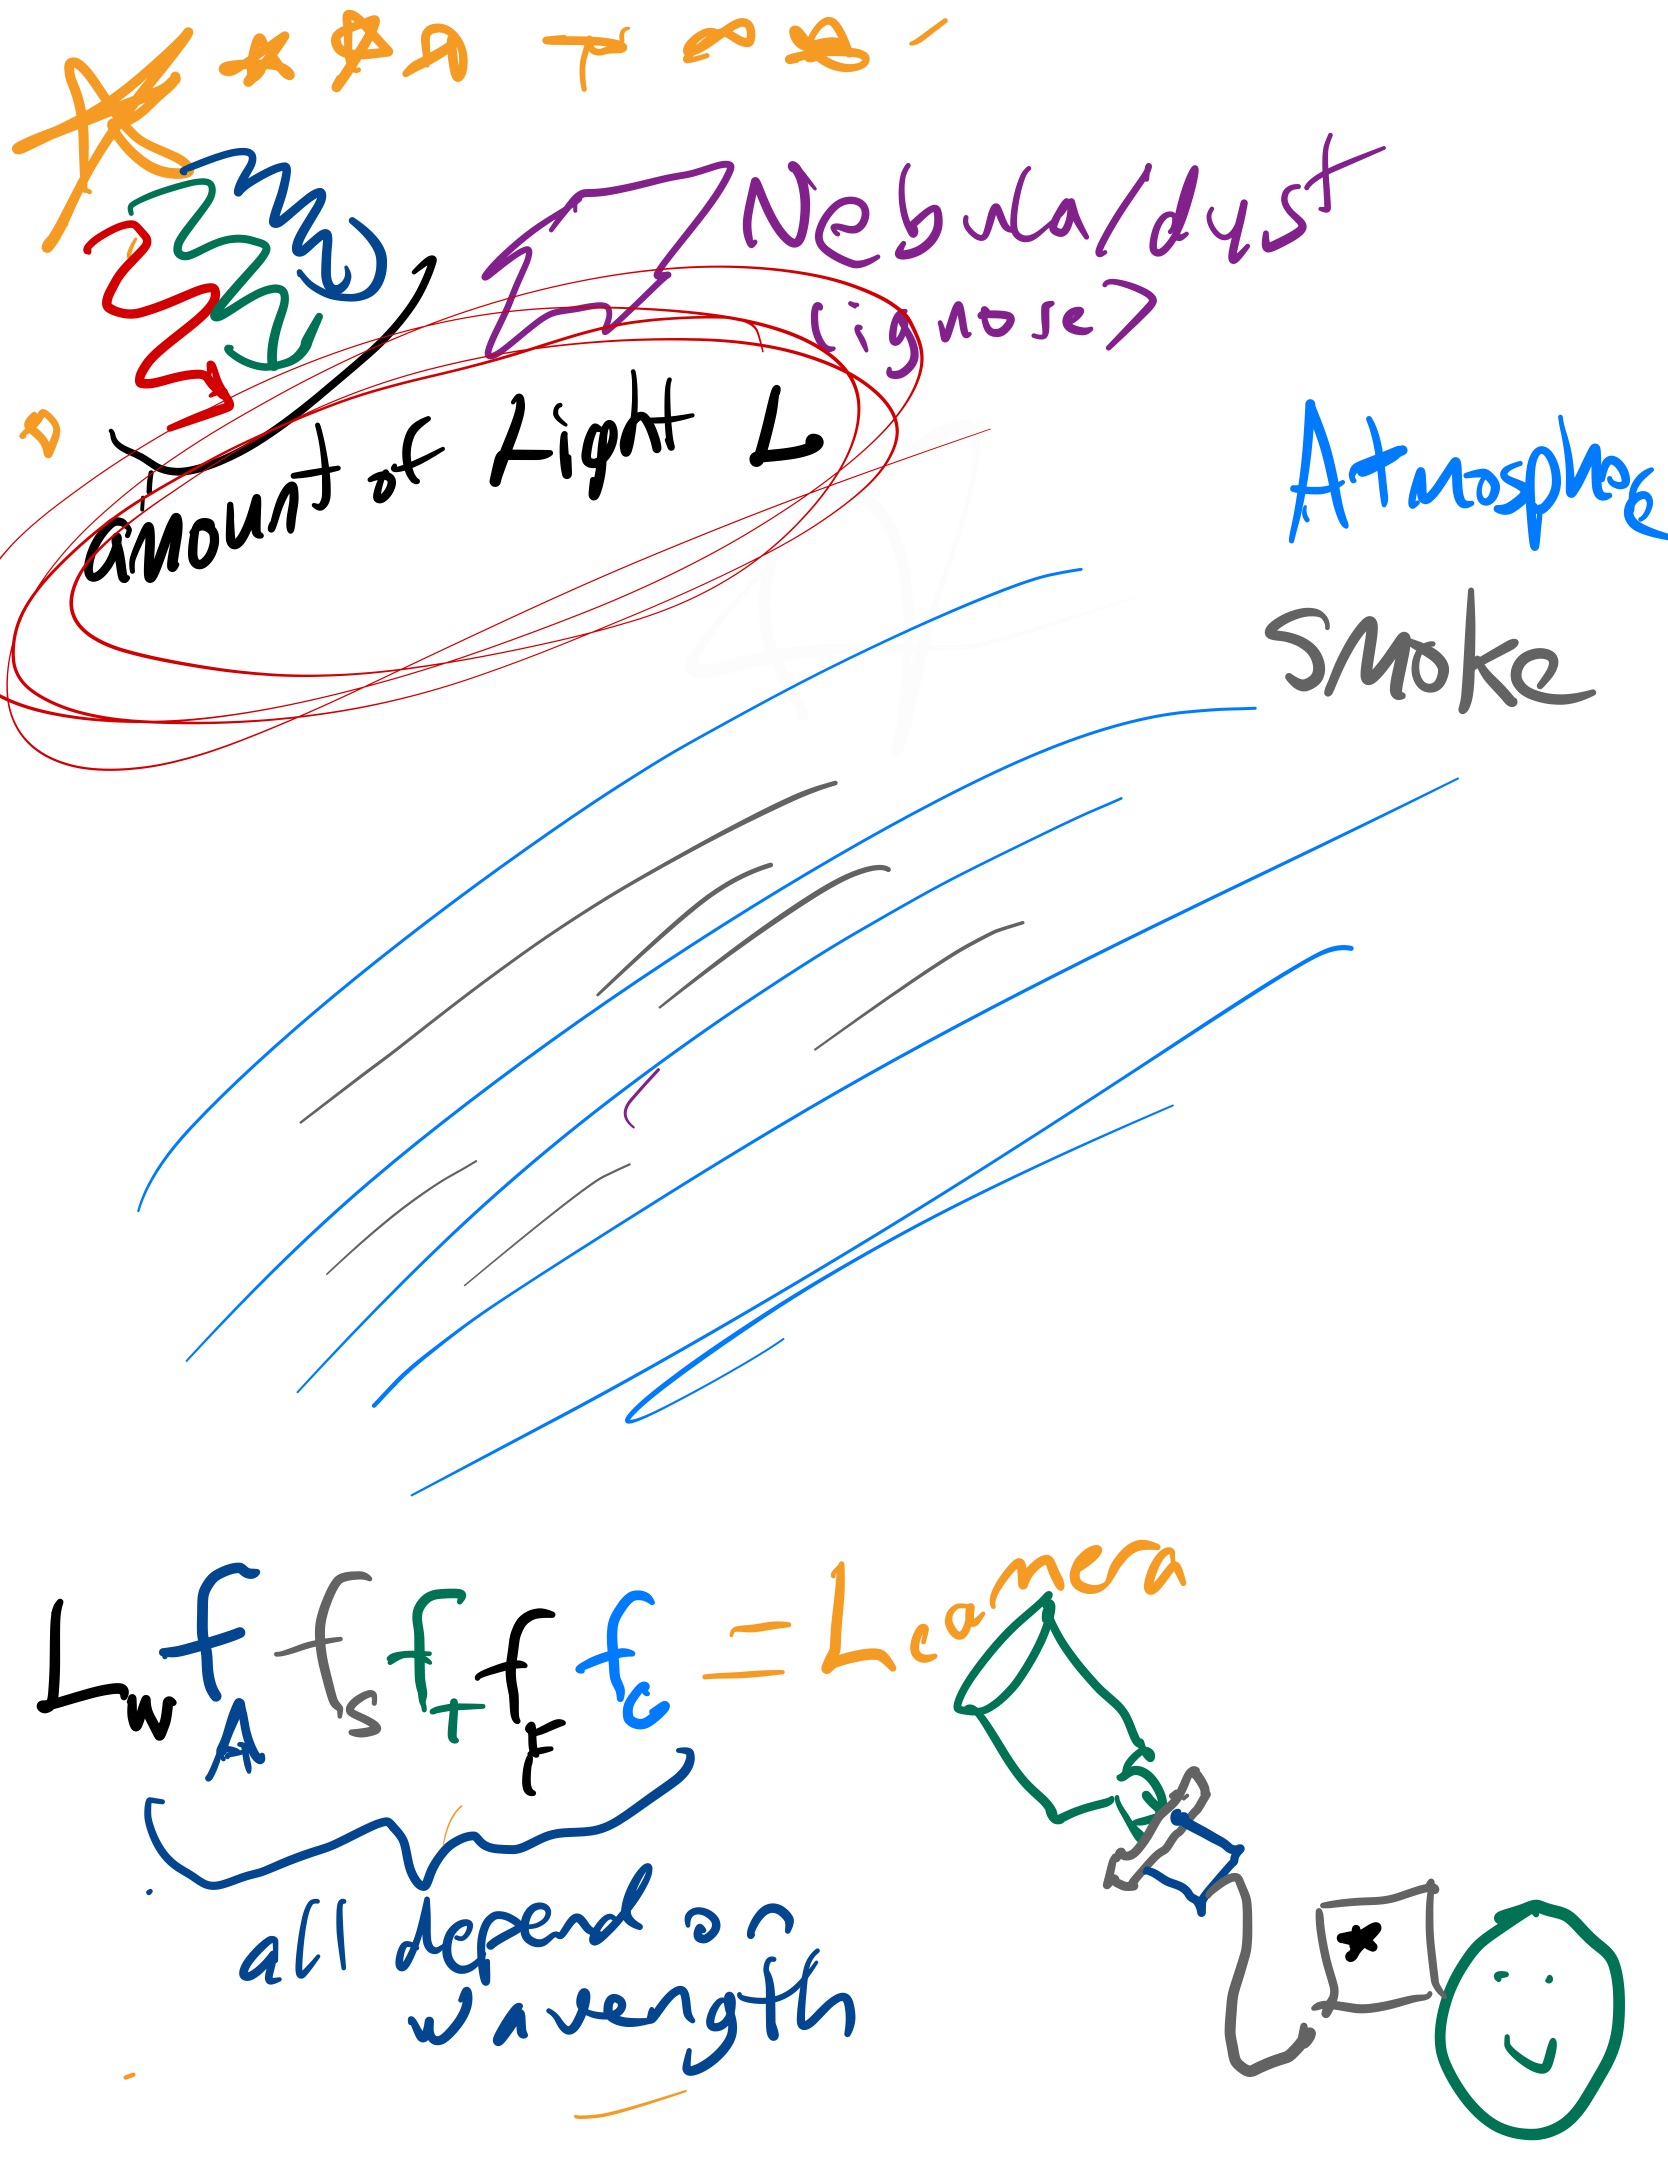 Nebula/dust
(ignose)
amount of Light L
Atmosphere
Smoke
L_w f_A f_s f_T f_F f_c = L_camera
all depend on
wavength